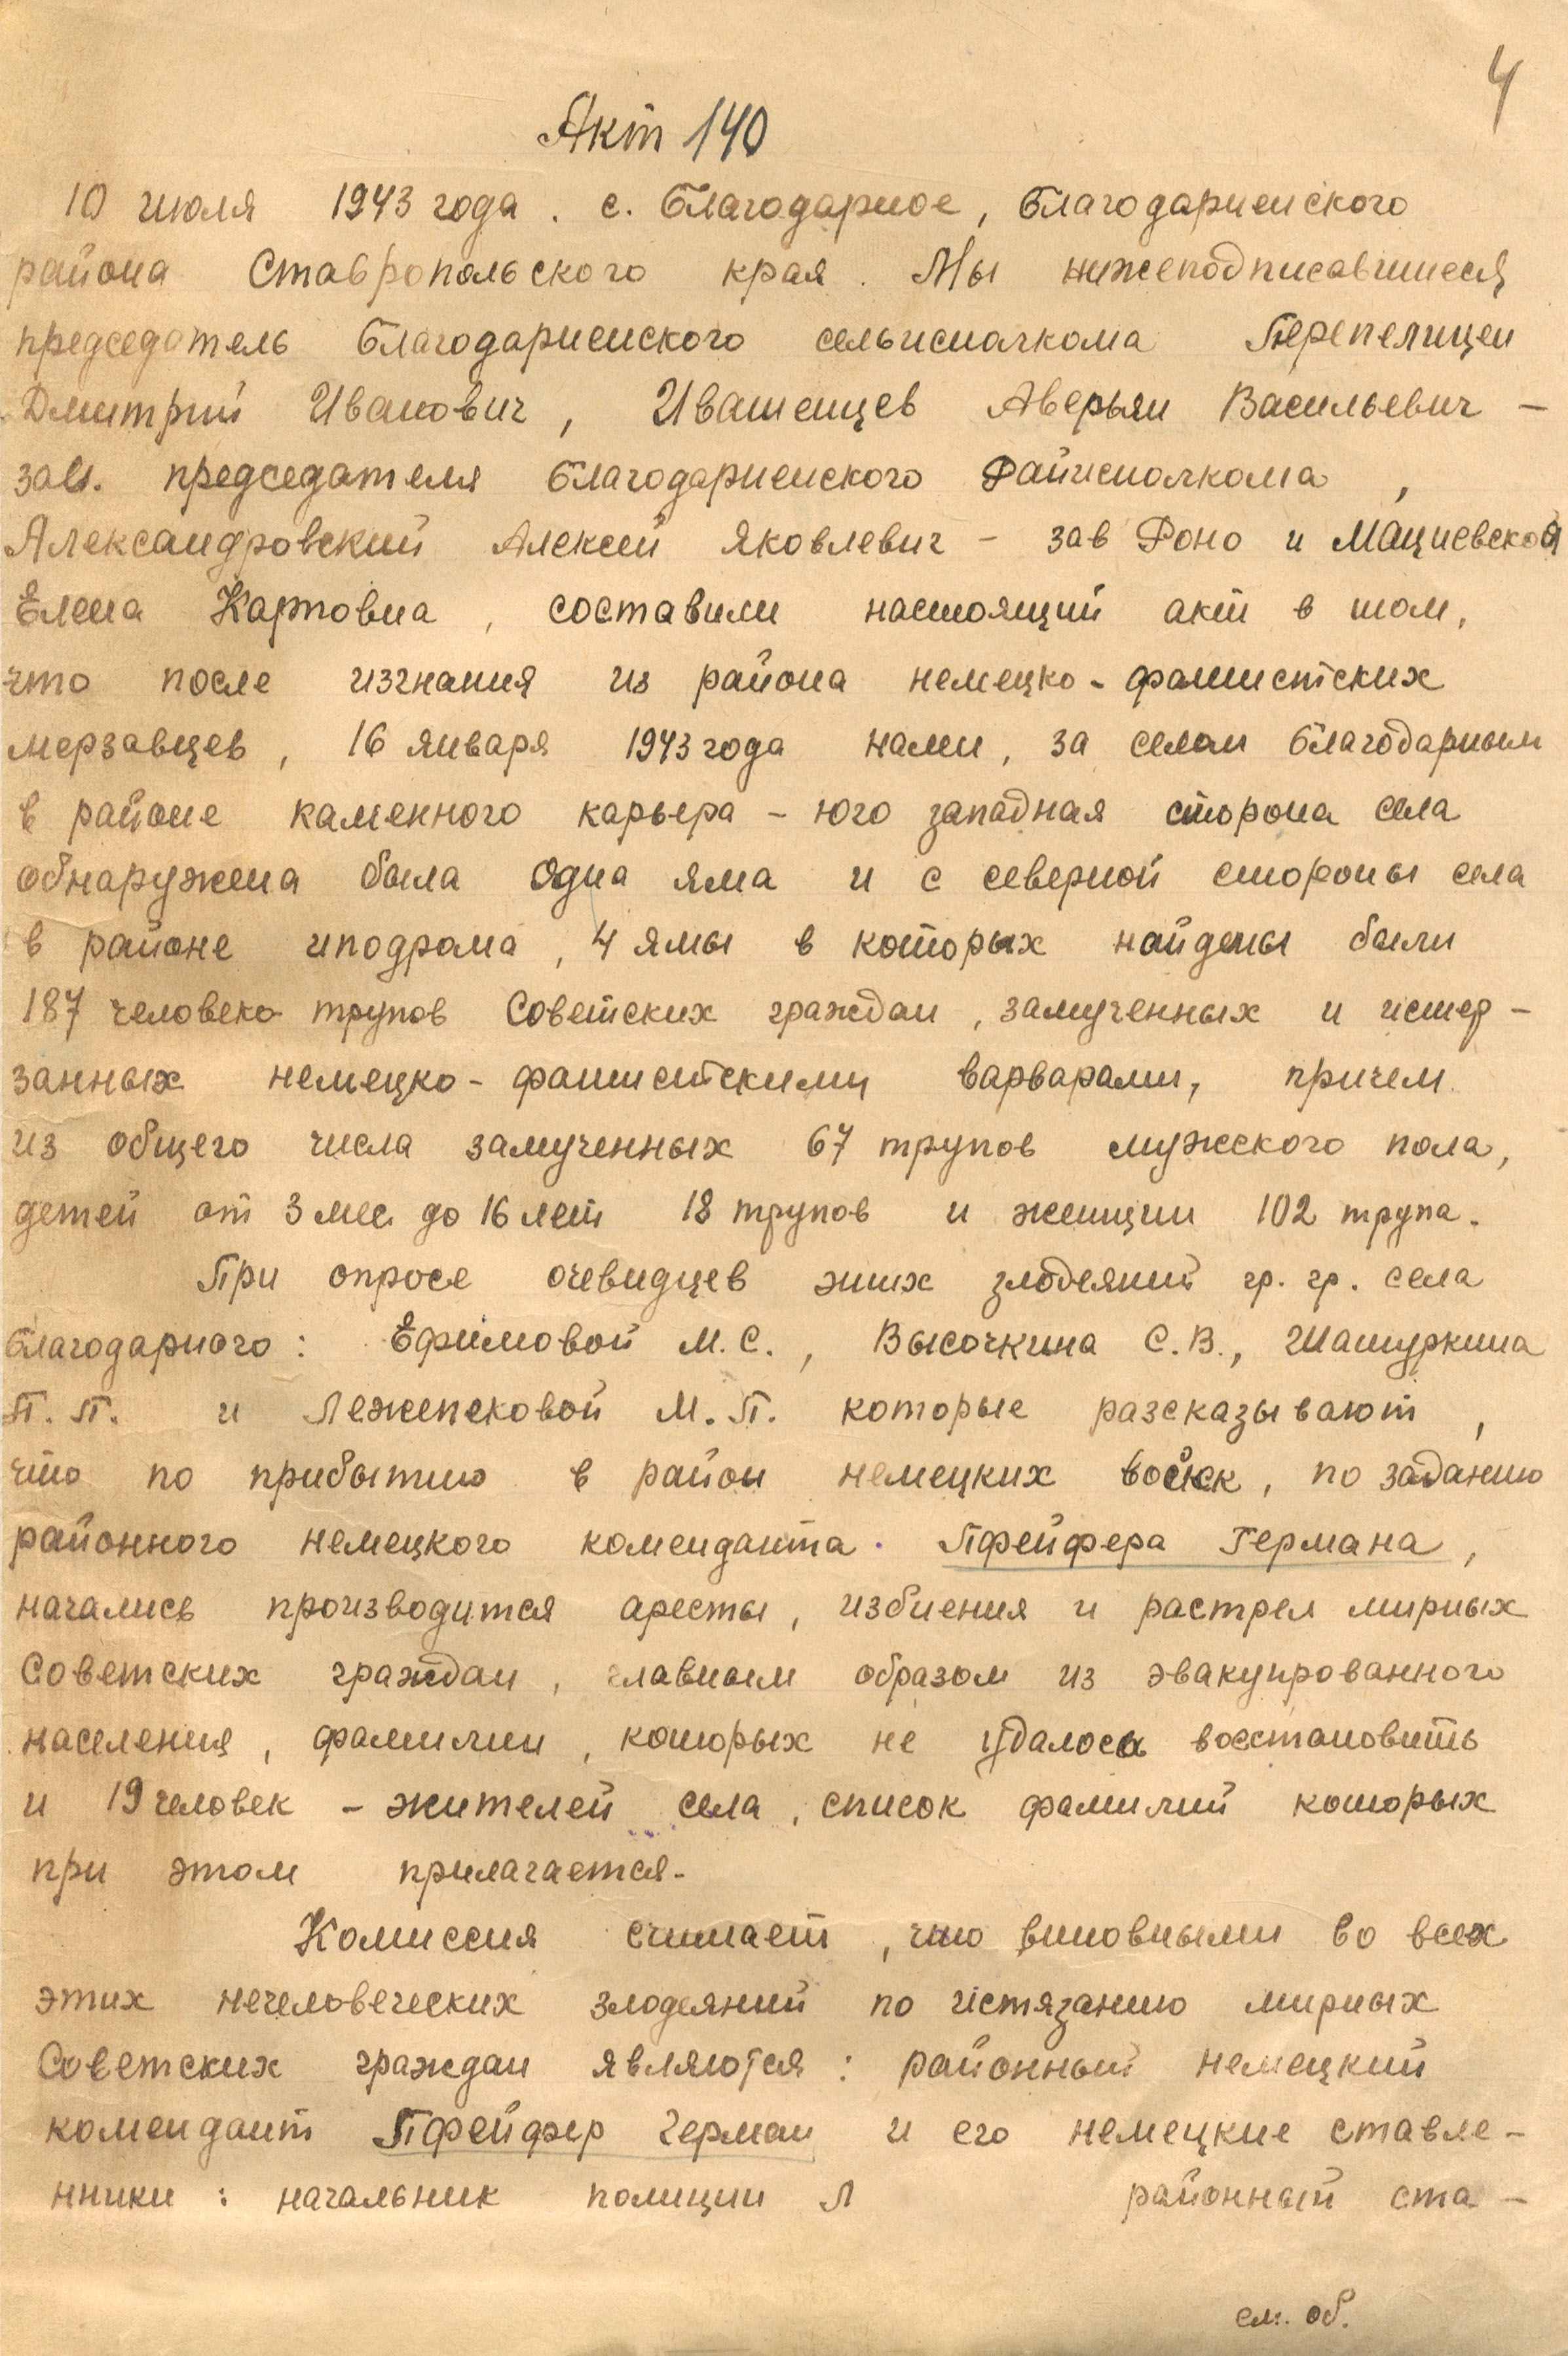 4
Акт 140
10 июля 1943 года. с. Благодарное, Благодарненского
района Ставропольского края. Мы нижеподписавшиеся
председатель Благодарненского сельисполкома Перепелицен
Дмитрий Иванович, Ивашенцев Аверьян Васильевич –
зам. председателя Благодарненского Райисполкома,
Александровский Алексей Яковлевич – зав Роно и Мациевской
Елена Карповна, составили настоящий акт в том,
что после изгнания из района немецко-фашистских
мерзавцев, 16 января 1943 года нами, за селом Благодарным
в районе каменного карьера – юго западная сторона села
обнаружена была одна яма и с северной стороны села
в районе иподрома, 4 ямы в которых найдены были
187 человека трупов Советских граждан, замученных и истер-
занных немецко-фашистскими варварами, причем
из общего числа замученных 67 трупов мужского пола,
детей от 3 мес до 16 лет 18 трупов и женщин 102 трупа.
При опросе очевидцев этих злодеяний гр. гр. села
Благодарного: Ефимовой М.С., Высочкина С.В., Шашуркина
П.П. и Лежепековой М.П. которые разсказывают,
что по прибытию в район немецких войск, по заданию
районного немецкого коменданта Пфейфера Германа,
начались производится аресты, избиения и растрел мирных
Советских граждан, главным образом из эвакуированного
населения, фамилии, которых не удалось восстановить
и 19 человек – жителей села, список фамилий которых
при этом прилагается.
Комиссия считает, что виновными во всех
этих нечеловеческих злодеяний по истязанию мирных
Советских граждан являются: районный немецкий
комендант Пфейфер Герман и его немецкие ставле-
нники: начальник полиции Л районный ста-
см. об.